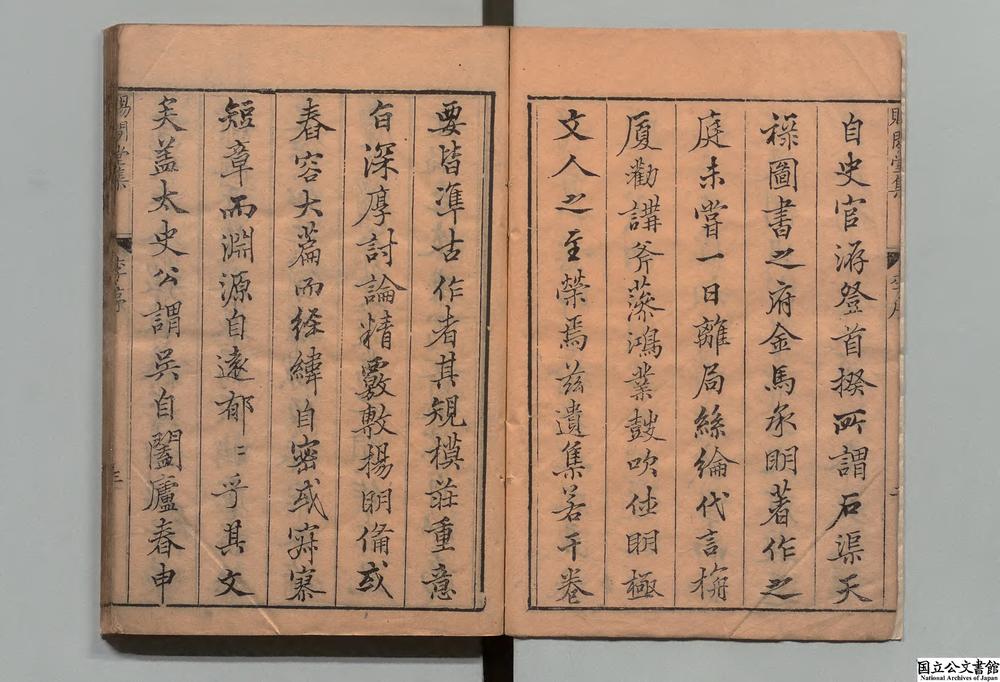 自史官游登首揆所謂石渠天
祿圖書之府金馬承明著作之
庭未嘗一日離局絲綸代言旃
厦勸講斧藻鴻業鼓吹休明極
文人之至榮焉茲遺集若干卷
要皆準古作者其規模莊重意
旨深厚討論精覈敷揚明俻或
舂容大篇而經緯自密或寂寥
短章而淵源自遠郁〻乎其文
矣盖太史公謂吳自闔廬春申
賜閒堂集
李序
国立公文書館
National Archives of Japan